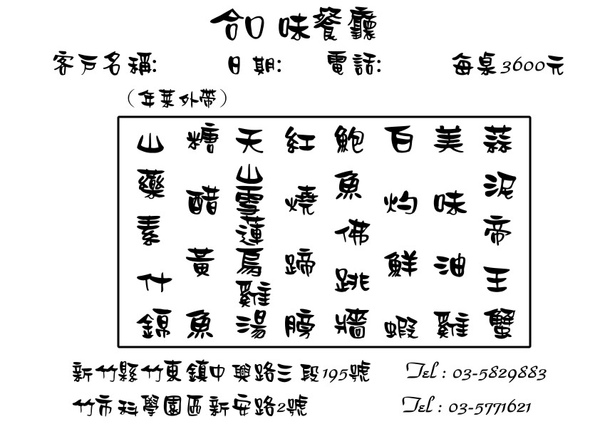 合口味餐廳
客戶名稱: 日期: 電話: 每桌3600元
（年菜外帶）
蒜泥帝王蟹
美味油雞
百灼鮮蝦
鮑魚佛跳牆
紅燒蹄膀
天山雪蓮烏雞湯
糖醋黃魚
山藥素什錦
新竹縣竹東鎮中興路三段195號 Tel : 03-5829883
竹市科學園區新安路2號 Tel : 03-5771621